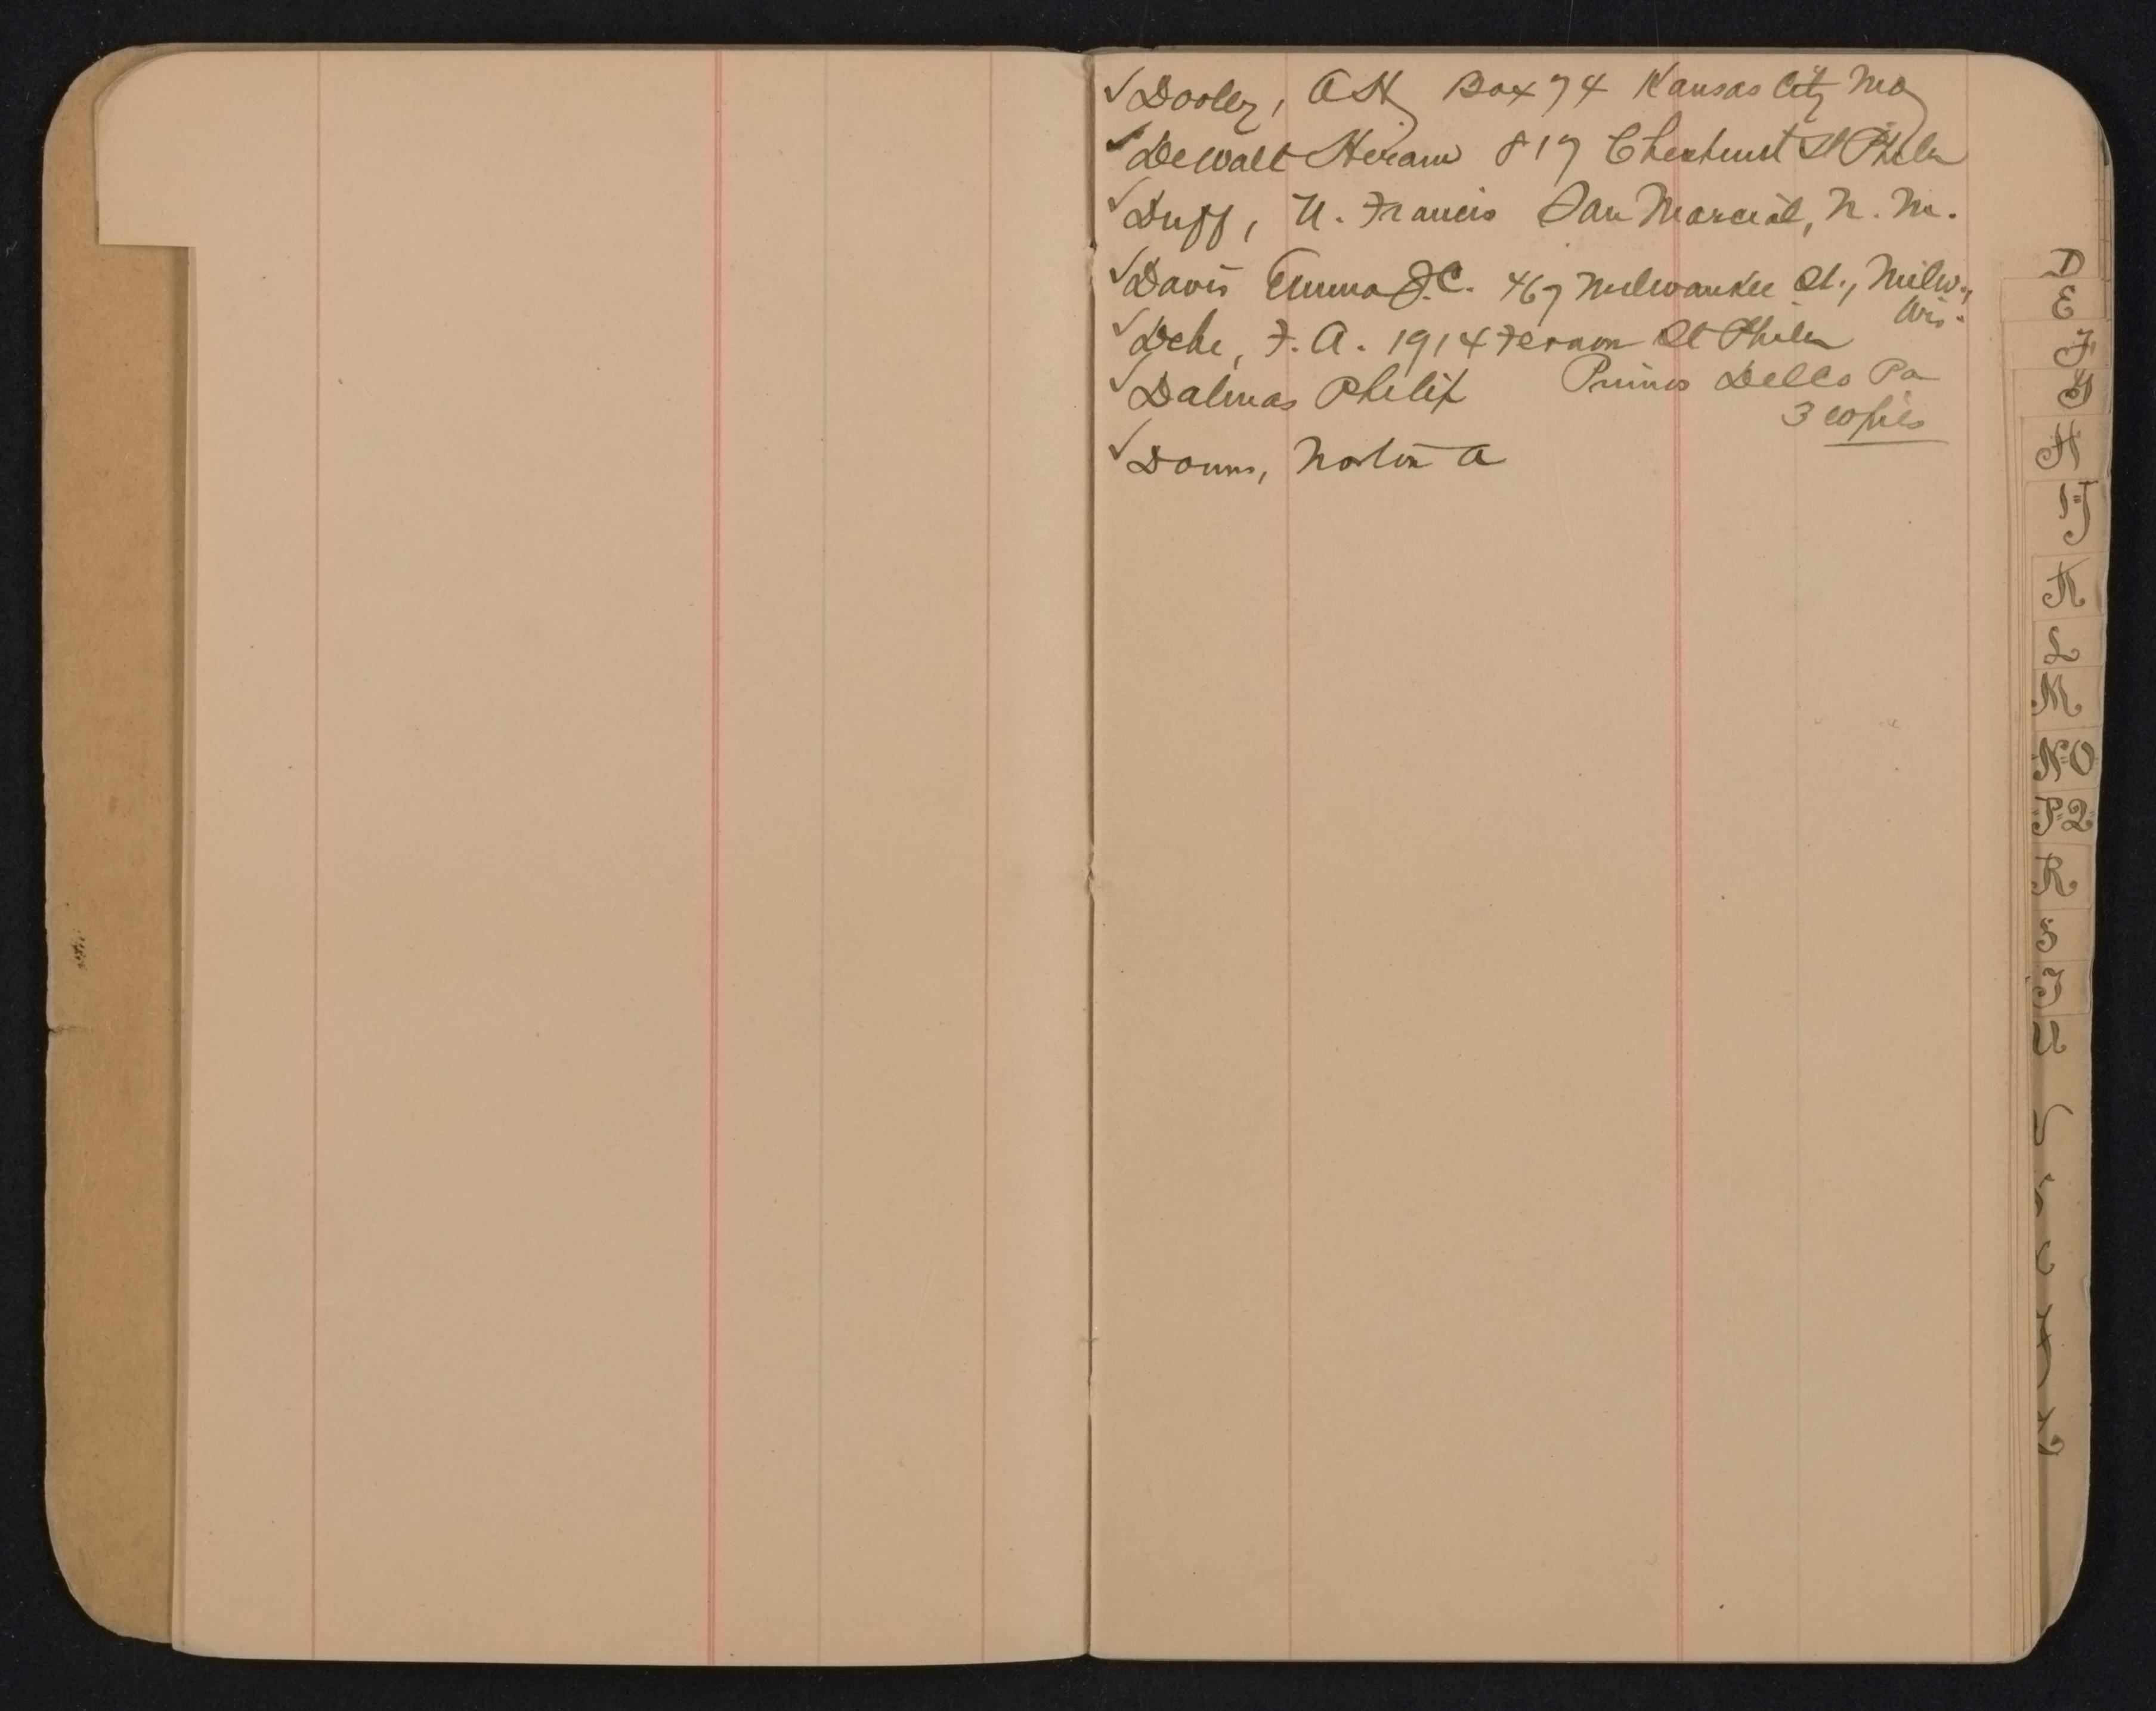 ✓ Dooley, A H Box 74 Kansas City Mo
✓ DeWalt Hiram 817 Chestnut St Phila
✓ Duff, U. Francis San Marcial, N. M.
✓ Davis Emma J.C. 467 Milwaukee St., Milw., Wis.
✓ F. A. 1914 St Phila
✓ Dalmas Philip Primos Pa
3 copies
✓ A
D
E
F
G
H
I-J
K
L
M
N-O
P-Q
R
S
T
U